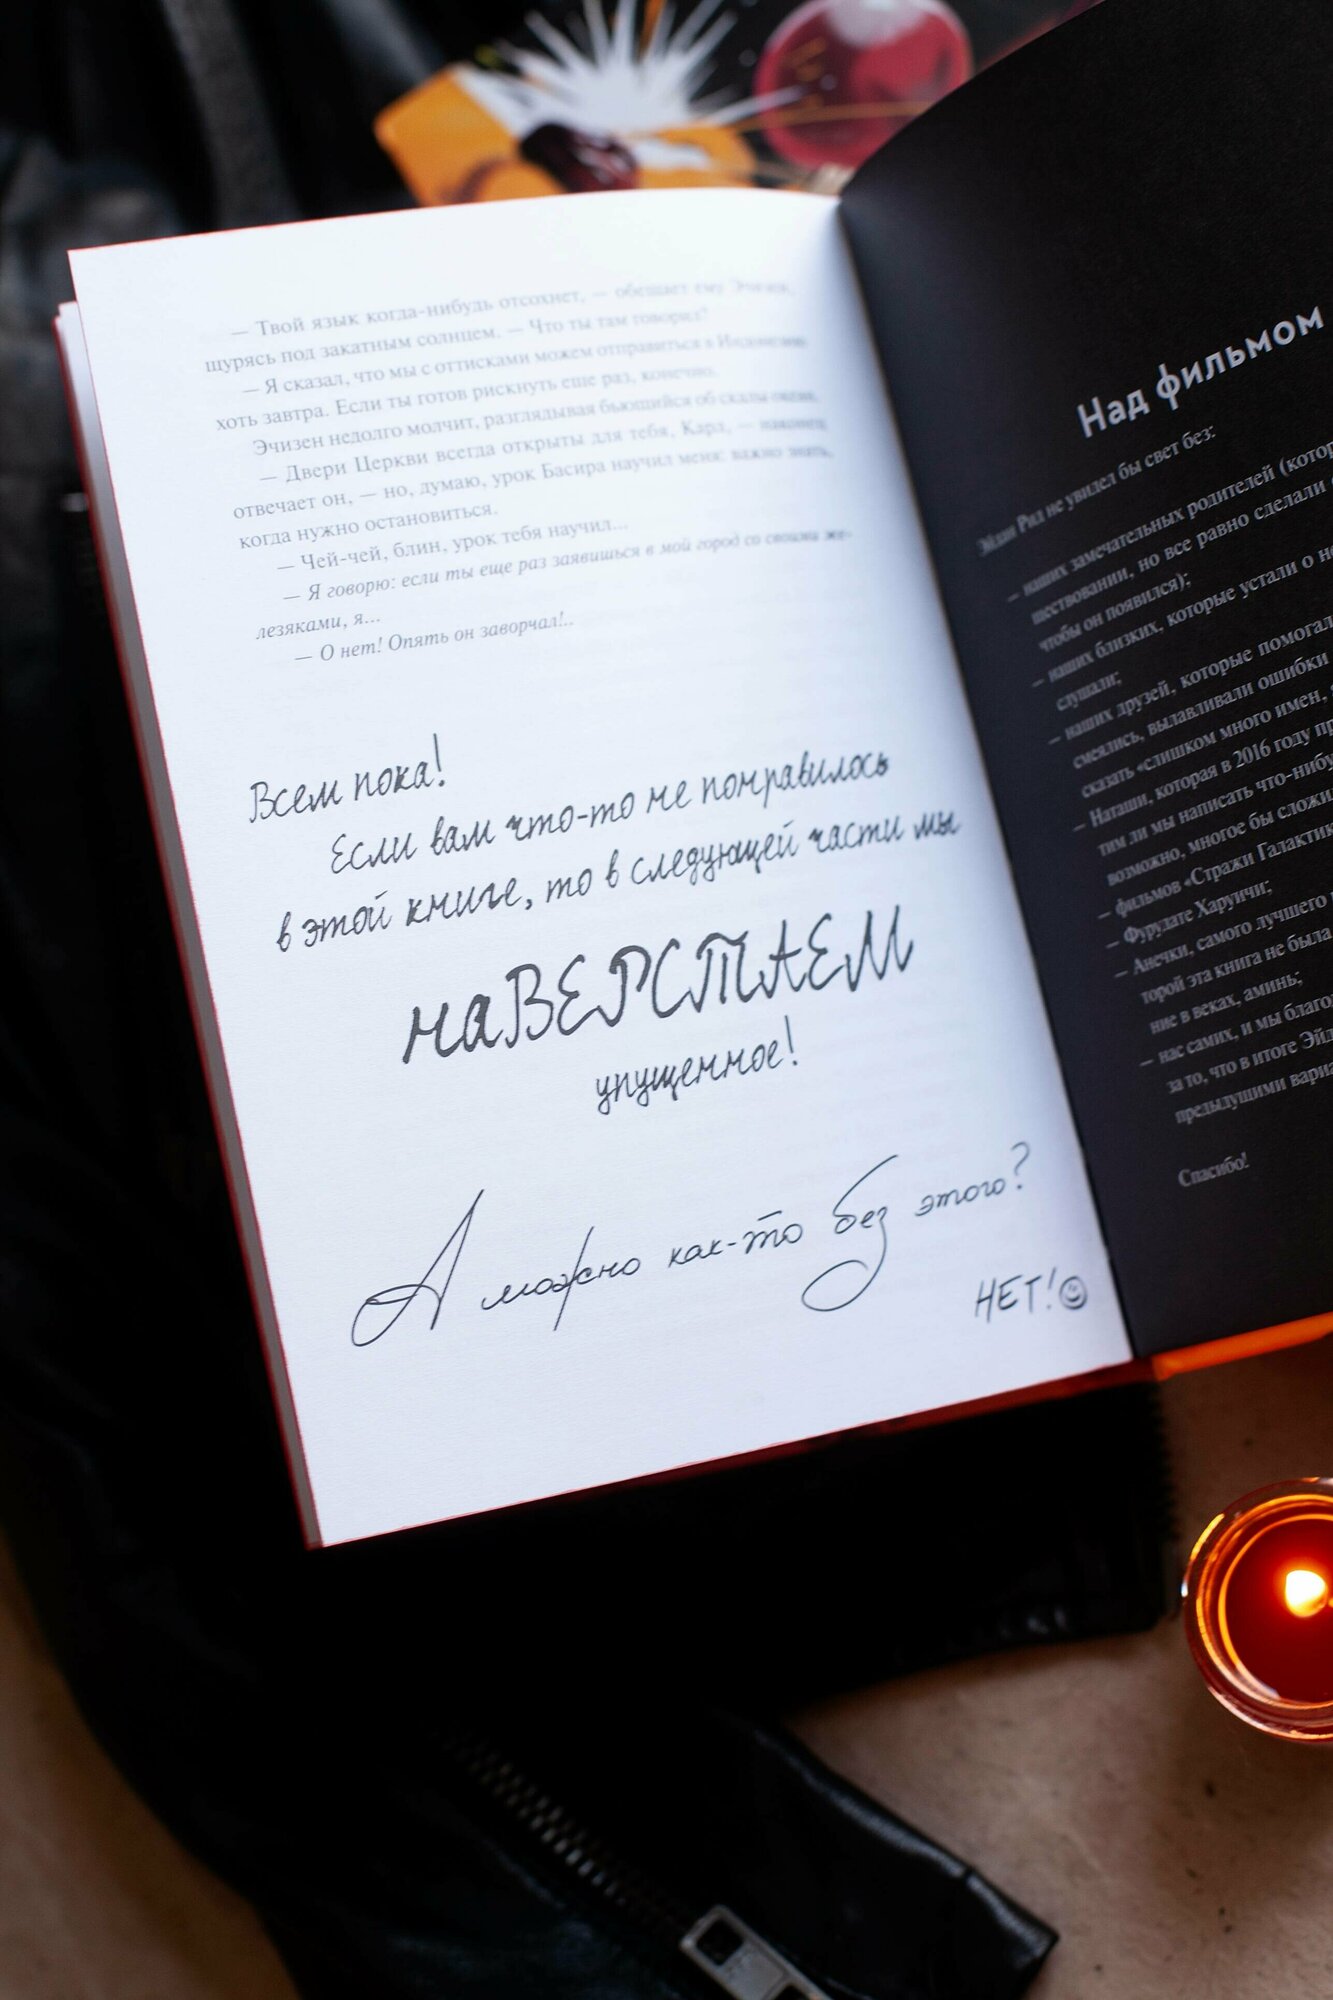 — Твой язык когда-нибудь отсохнет, — обещает ему Эчизен,
щурясь под закатным солнцем. — Что ты там говорил?
— Я сказал, что мы с оттисками можем отправиться в Индонезию
хоть завтра. Если ты готов рискнуть еще раз, конечно.
Эчизен недолго молчит, разглядывая бьющийся об скалы океан.
— Двери Церкви всегда открыты для тебя, Карл, — наконец
отвечает он, — но, думаю, урок Басира научил меня: важно знать,
когда нужно остановиться.
— Чей-чей, блин, урок тебя научил...
— Я говорю: если ты еще раз заявишься в мой город со своими же-
лезяками, я...
— О нет! Опять он заворчал!..
Всем пока!
Если вам что-то не понравилось
в этой книге, то в следующей части мы
наВЕРСТАЕМ
упущенное!
А можно как-то без этого?
НЕТ!☺
Над фильмом
Эйдан Рид не увидел бы свет без:
— наших замечательных родителей (котор
шествовании, но все равно сделали
чтобы он появился);
— наших близких, которые устали о н
слушали;
— наших друзей, которые помогал
смеялись, вылавливали ошибки
сказать «слишком много имен,
— Наташи, которая в 2016 году пр
тим ли мы написать что-нибу
возможно, многое бы сложи
— фильмов «Стражи Галактик
— Фурудате Харуичи;
— Анечки, самого лучшего
торой эта книга не была
ние в веках, аминь;
— нас самих, и мы благо
за то, что в итоге Эйд
предыдущими вариа
Спасибо!